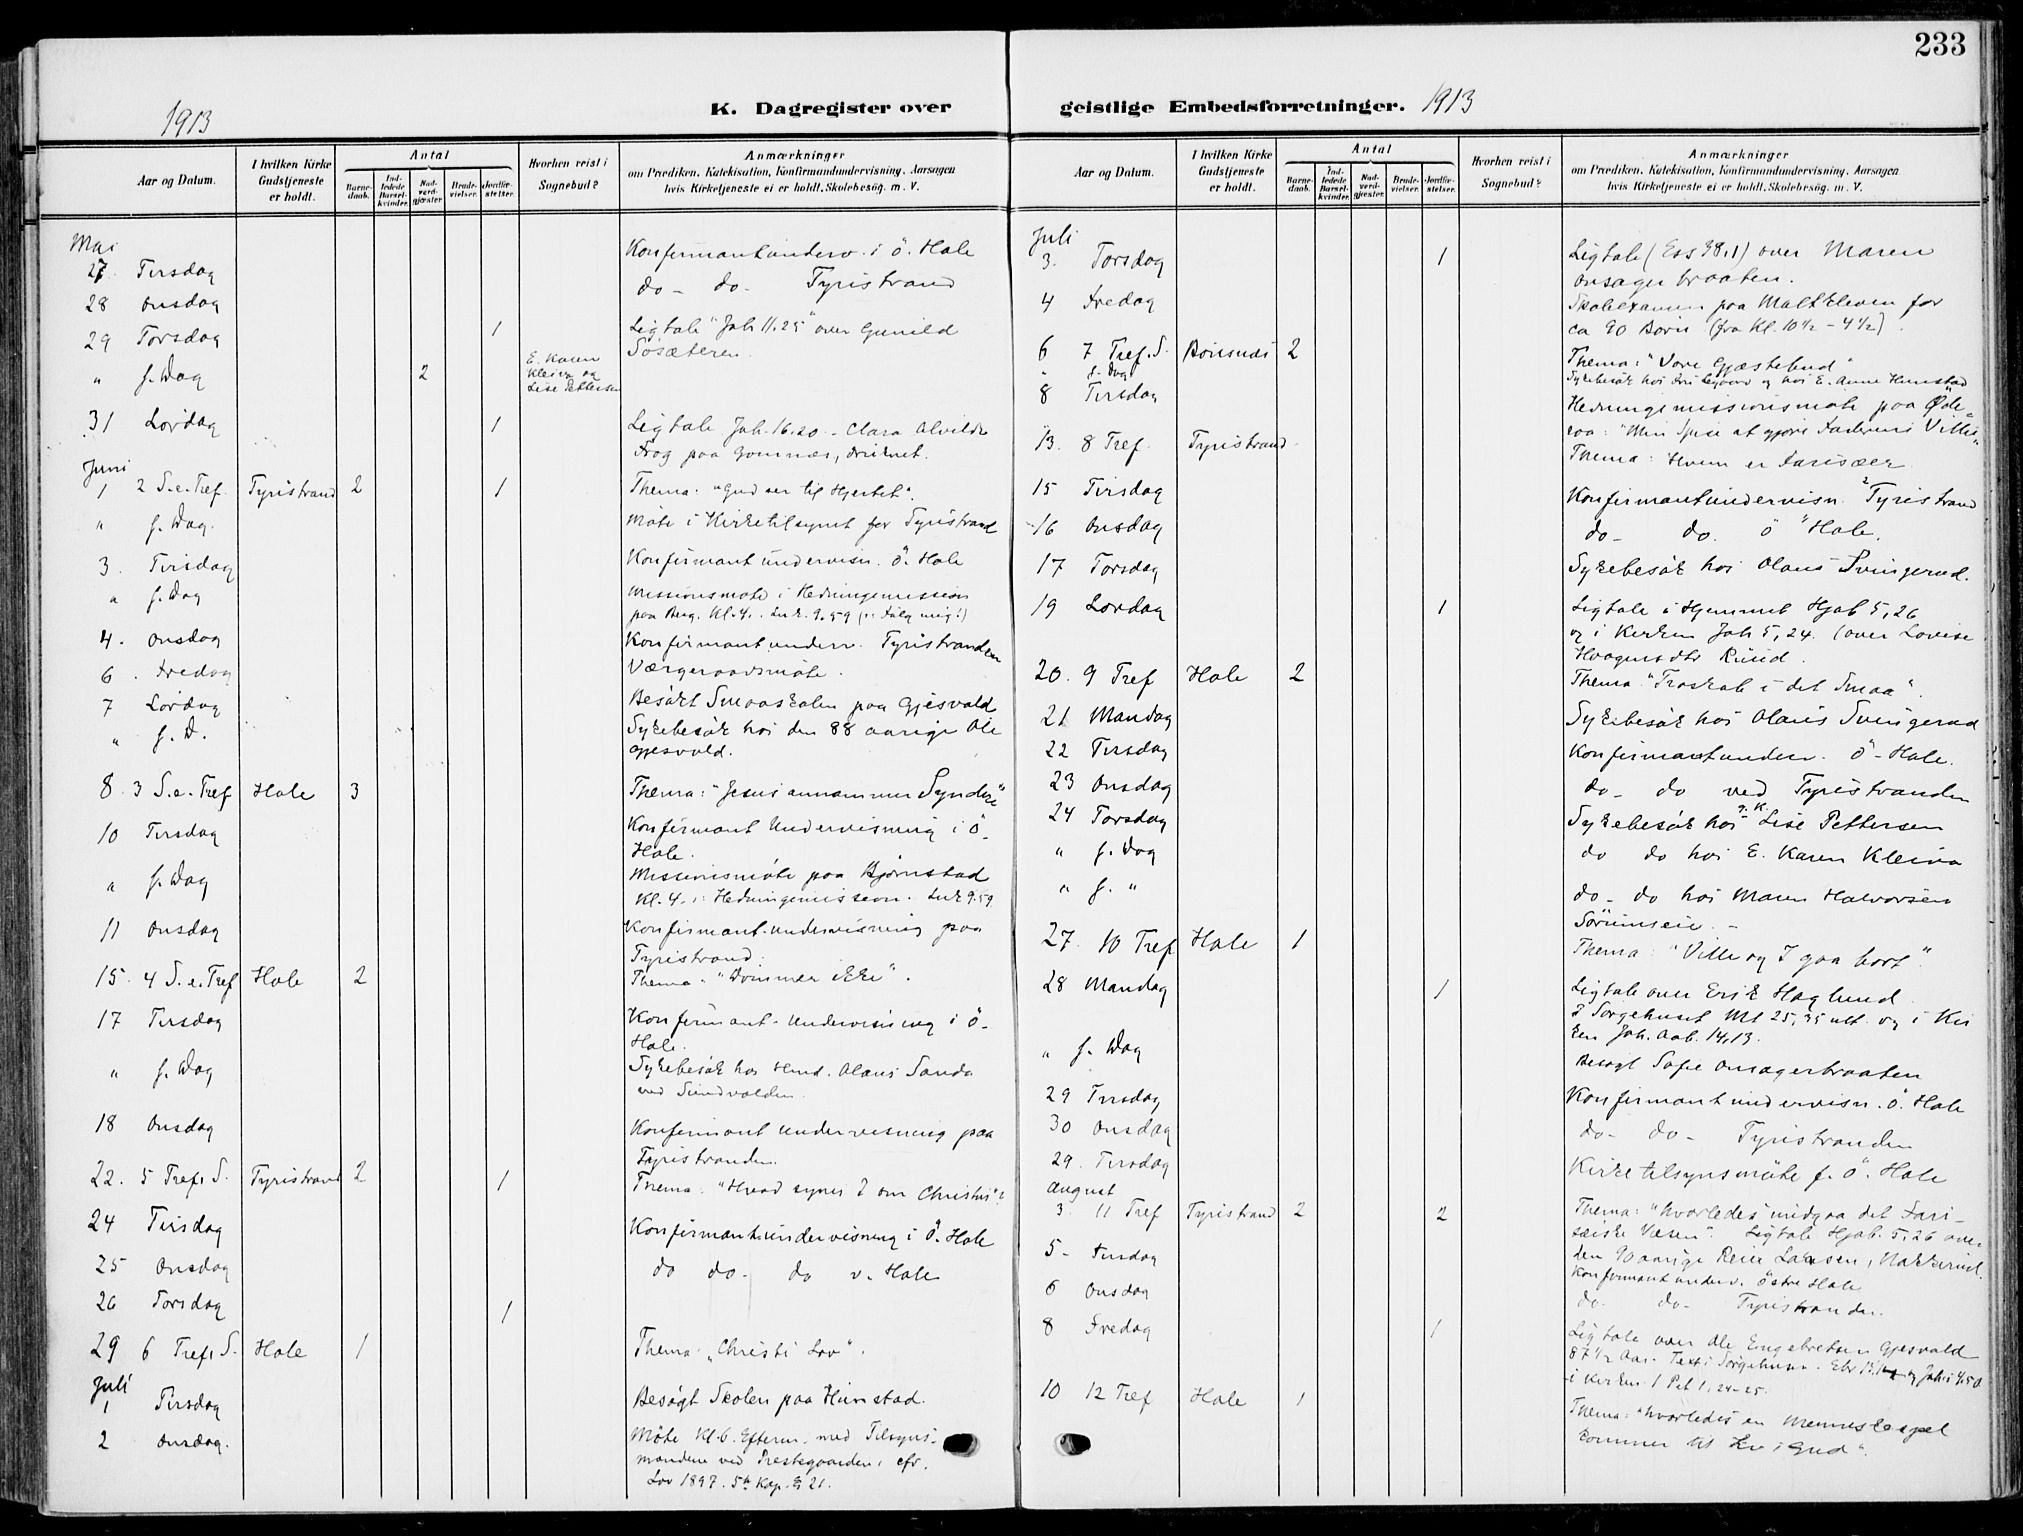 233
1913
K. Dagregister over
geistlige Embedsforretninger. 1913
Aar og Datum.
I hvilken Kirke Gudstjeneste er holdt.
Antal
Barnedaab.
Indledede Barselkvinder.
Nadverdgjæster.
Brudevielser.
Jordfæstelser.
Hvorhen reist i Sognebud?
Anmærkninger
om Prædiken, Katekisation, Konfirmandundervisning, Aarsagen
hvis Kirketjeneste ei er holdt, Skolebesög, m. V.
Mai
27. Tirsdag Konfirmantunderv. i Ö. Hole
28 Onsdag do - do - Tyristrand
29 Torsdag 1 Ligtale "Joh 11.25" over Gunild
Sösæteren.
" s. Dag 2 E. Karen
Kleiva og
Lise Pettersen
31 Lørdag 1 Ligtale Joh. 16.20 - Clara Alvilde
Frog paa Gomnæs, druknet.
Juni
1 2 S.e.Tref. Tyristrand 2 1 Thema: "Gud ser til Hjertet".
" s. Dag. Möte i Kirketilsynet for Tyristrand
3. Tirsdag Konfirmant undervisn. Ö. Hole
" s. Dag Missionsmöte i Hedningemission
paa Berg. Kl. 4. Luk. 9.59 (: fölg mig!)
4. Onsdag Konfirmantunderv. Tyristranden
6. Fredag Værgeraadsmöte.
7 Lördag Besökt Smaaskolen paa Gjesvold
" s. D. Sykebesök hos den 88 aarige Ole
Gjesvold.
8. 3 S.e.Tref Hole 3 Thema: "Jesus annammer Syndere"
10 Tirsdag Konfirmant Undervisning i Ö.
Hole.
" s. Dag Missionsmöte paa Bjørnstad
Kl. 4. : Hedningemission. Luk 9.59
11 Onsdag Konfirmant-undervisning paa
Tyristrand.
15. 4 S.e.Tref Hole 2 Thema. "Dömmer ikke".
17 Tirsdag Konfirmant-Undervisning i Ö-
Hole.
" s. Dag Sykebesök hos Hmd. Olaus Sanda
ved Sundvolden.
18 Onsdag Konfirmant undervisning paa
Tyristranden.
22. 5 Tref. S. Tyristrand 2 1 Thema: "Hvad synes I om Christus"?
24 Tirsdag Konfirmantundervisning i Ö. Hole
25 Onsdag do do - do v. Hole
26 Torsdag 1
29 6 Tref. S. Hole 1 Thema: "Christi Lov".
Juli
1 Tirsdag Besögt Skolen paa Hunstad.
2 Onsdag. Möte Kl. 6. Efterm. med Tilsyns-
mændene ved Prestegaarden, cfr.
Lov 1897. 5te Kap. § 21.
Aar og Datum.
I hvilken Kirke Gudstjeneste er holdt.
Antal
Barnedaab.
Indledede Barselkvinder.
Nadverdgjæster.
Brudevielser.
Jordfæstelser.
Hvorhen reist i Sognebud?
Anmærkninger
om Prædiken, Katekisation, Konfirmandundervisning, Aarsagen
hvis Kirketjeneste ei er holdt, Skolebesög, m. V.
Juli
3. Torsdag 1 Ligtale (Ess 38,1) over Maren
Onsagerbraaten.
4 Fredag Skoleexamen paa Maltkleven for
ca 90 Børn (fra Kl. 10½ - 4½).
6 7 Tref. S. Bönsnes 2 Thema: "Vore Gjæstebud"
" s. Dag Sykebesök hos og hos E. Anne Hunstad
8 Tirsdag Hedningemissionsmöte paa Øde-
: "Min Spise at gjøre Faderens Villie"
13. 8 Tref. Tyristrand Thema: Hvem er Farisæer
15 Tirsdag Konfirmantundervisn. Tyristrand
16 Onsdag do - do. Ö Hole.
17 Torsdag Sykebesök hos Olaus Svingerud.
19 Lørdag 1 Ligtale i Hjemmet Hjob 5,26
og i Kirken Joh 5,24. (over Lovise
Haagensdtr Ruud.
20. 9 Tref Hole 2 Thema: "Troskab i det Smaa".
21 Mandag Sykebesök hos Olaus Svingerud
22 Tirsdag Konfirmantunderv. Ö - Hole.
23 Onsdag do - do ved Tyristranden
24 Torsdag Sykebesök hos g. K. Lise Pettersen
" s. Dag do do hos E. Karen Kleiva
" s. " do - do hos Maren Halvorsen
Sörumseie. -
27. 10 Tref Hole 1 Thema: "Ville og I gaa bort".
28 Mandag 1 Ligtale over Erik Haglund
I Sorgehuset Mt 25,35 ult. og i Kir
ken Joh. Aab. 14,13.
" s. Dag Besögt Sofie Onsagerbraaten
29 Tirsdag Konfirmantundervisn. Ö. Hole
30 Onsdag do - do - Tyristranden
29. Tirsdag Kirketilsynsmöte f. Ö. Hole
August
3. 11 Tref Tyristrand 2 2 Thema: "Hvorledes undgaa det Fari-
sæiske Væsen". Ligtale Hjob. 5,26 over
den 90 aarige Reier Larsen, Nakkerud.
5 - Tirsdag Konfirmantunderv. Östre Hole
6 Onsdag do - do - Tyristranden.
8 Fredag 1 Ligtale over Ole Engebretsen Gjesvold
87½ Aar. Text i Sörgehuset. Ebr 13.14 og
i Kirken 1 Pet 1,24-25.
10 12 Tref Hole 1 Thema: "Hvorledes en Menneskesjel
kommer til Liv i Gud".